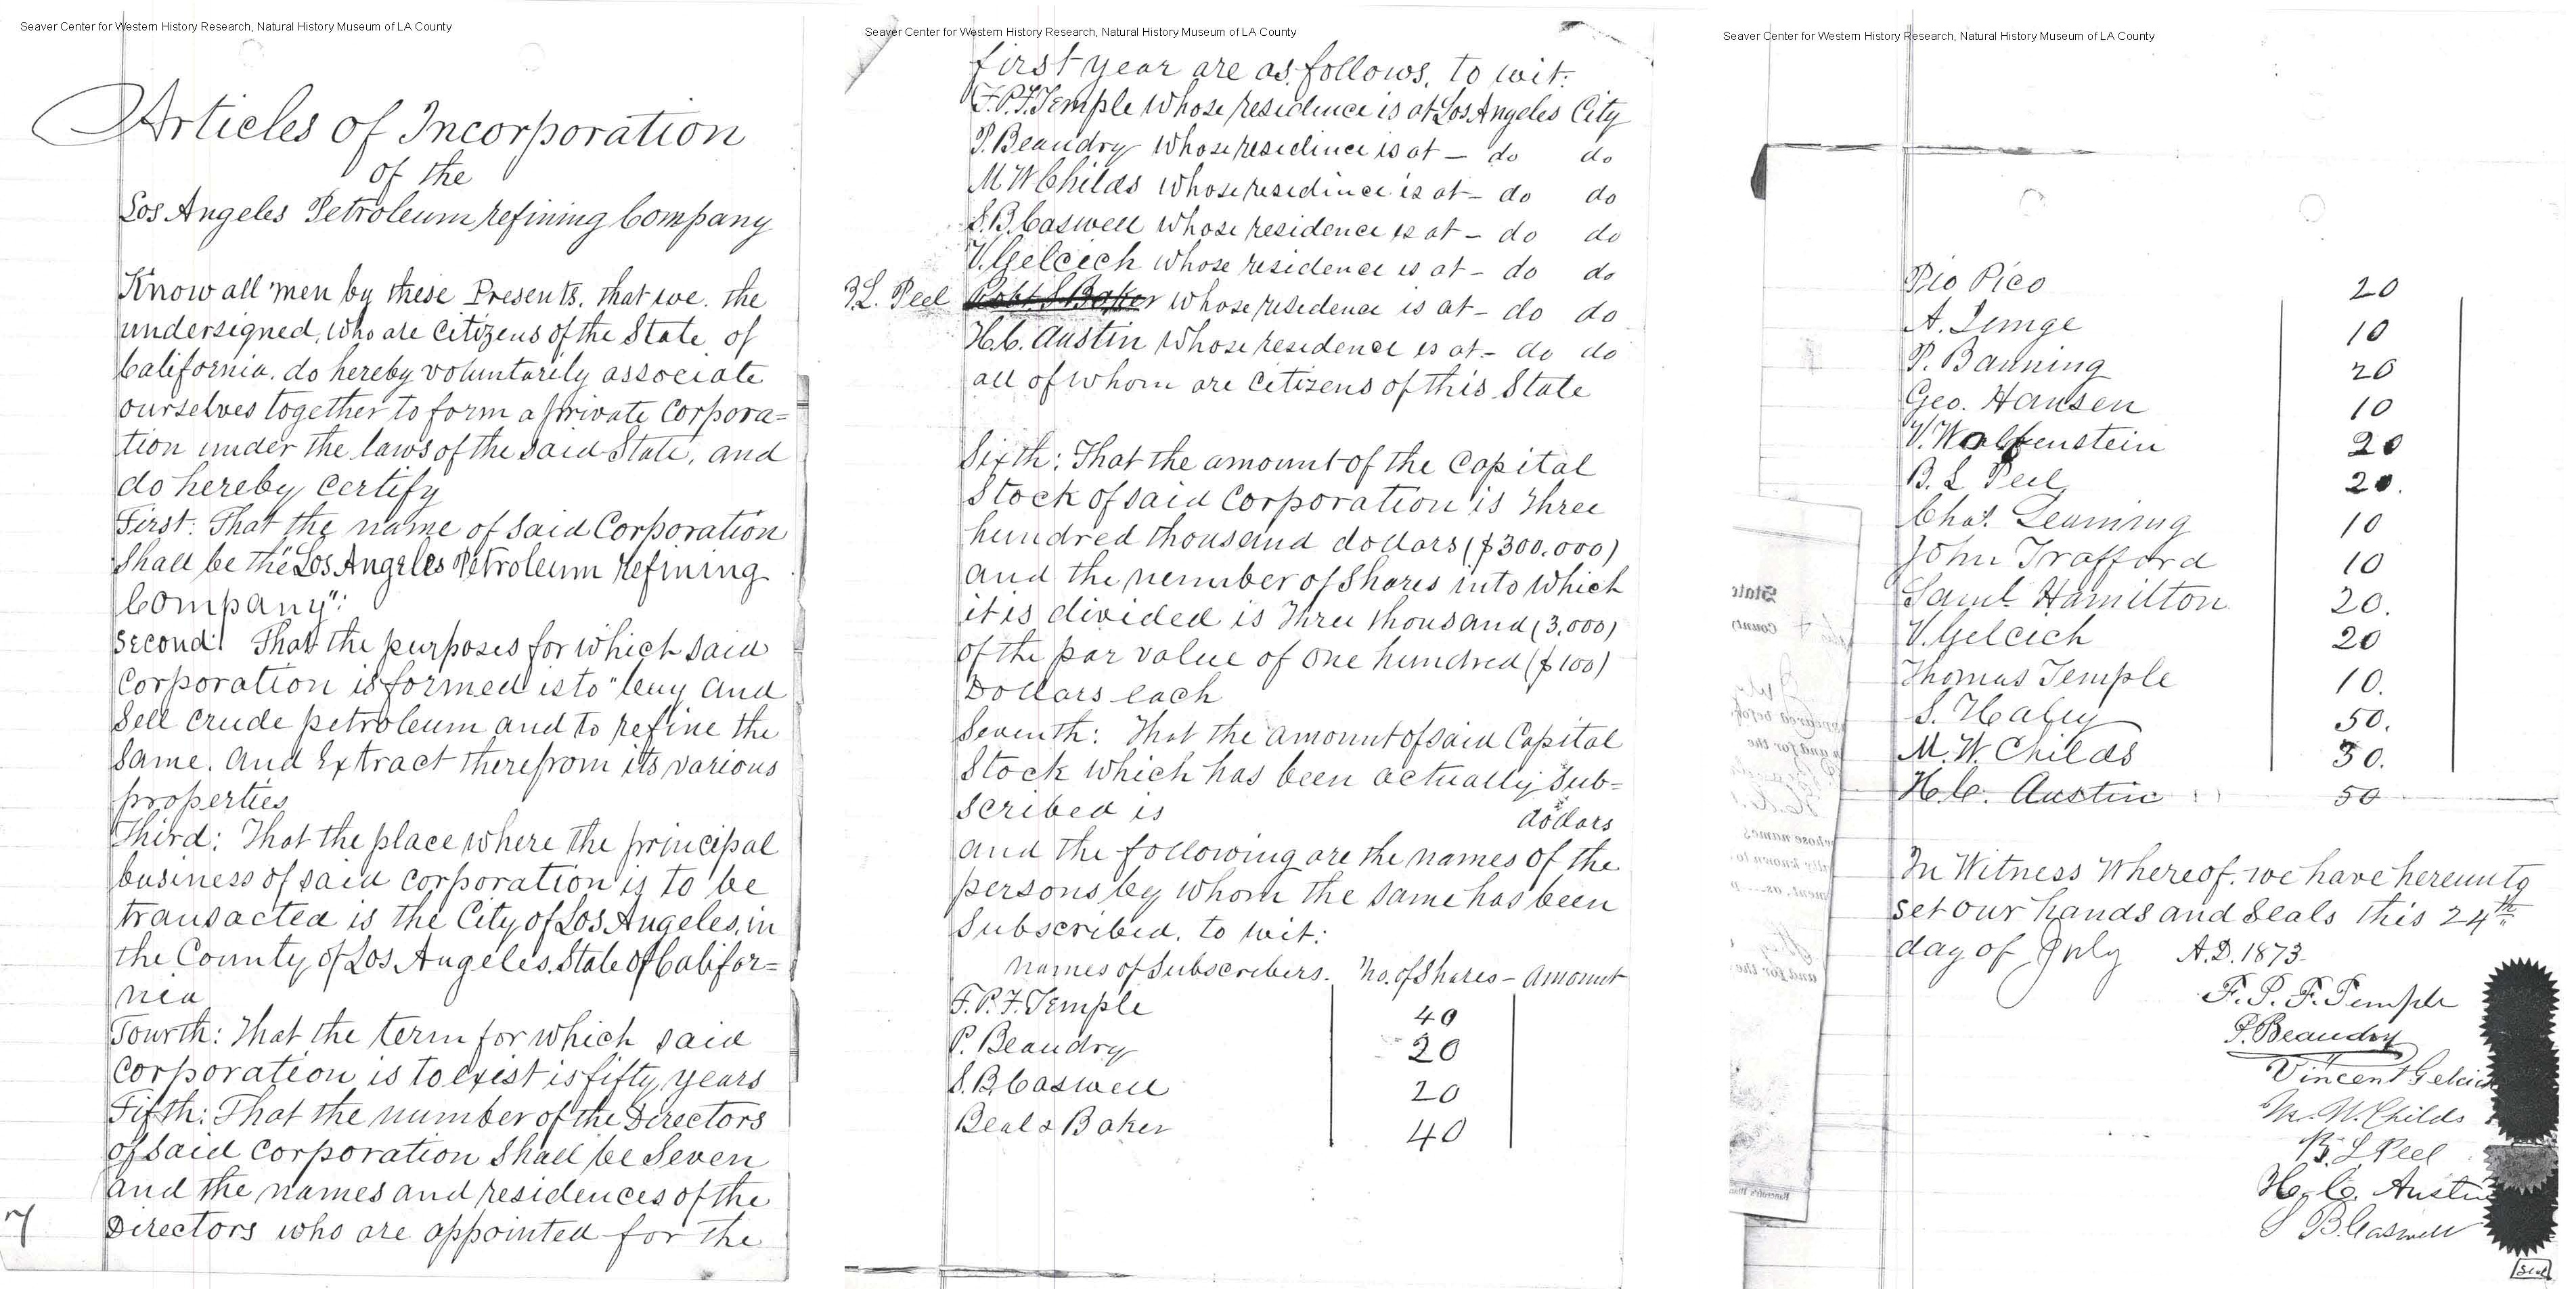 Seaver Center for Western History Research, Natural History Museum of LA County
Articles of Incorporation
of the
Los Angeles Petroleum refining Company
Know all men by these Presents, that we, the
undersigned, who are citizens of the State of
California, do hereby voluntarily associate
ourselves together to form a private corpora=
tion under the laws of the said State, and
do hereby certify
First: That the name of said Corporation
shall be the "Los Angeles Petroleum Refining
Company":
Second: That the purposes for which said
Corporation is formed is to "buy and
sell crude petroleum and to refine the
same, and Extract therefrom its various
properties
Third: That the place where the principal
business of said corporation is to be
transacted is the City of Los Angeles, in
the County of Los Angeles, State of Califor=
nia
Fourth: That the term for which said
corporation is to exist is fifty years
Fifth: That the number of the Directors
of said corporation shall be Seven
and the names and residences of the
Directors who are appointed for the
Seaver Center for Western History Research, Natural History Museum of LA County
first year are as follows, to wit:
F.P.F. Temple whose residence is at Los Angeles City
P. Beaudry whose residence is at – do do
M W Childs whose residence is at – do do
S.B. Caswell whose residence is at – do do
V. Gelcich whose residence is at – do do
B.L. Peel Robt S Baker whose residence is at – do do
H.C. Austin whose residence is at – do do
all of whom are citizens of this State
Sixth: That the amount of the Capital
Stock of said Corporation is Three
hundred thousand dollars ($300.000)
and the number of Shares into which
it is divided is three thousand (3,000)
of the par value of one hundred ($100)
Dollars each
Seventh: That the amount of said Capital
Stock which has been actually sub=
scribed is dollars
and the following are the names of the
persons by whom the same has been
Subscribed, to wit:
Names of Subscribers. No. of Shares – Amount
F.P.F. Temple 40
P. Beaudry 20
S.B. Caswell 20
Beal & Baker 40
Seaver Center for Western History Research, Natural History Museum of LA County
Pio Pico 20
A. 10
P. Banning 20
Geo. Hansen 10
V. Wolfenstein 20
B. L Peel 20.
Chas. Leaming 10
John Trafford 10
Saml Hamilton 20.
V. Gelcich 20
Thomas Temple 10.
S. Haley 50.
M. W. Childs 30.
H.C. Austin 50
In Witness Whereof, we have hereunto
set our hands and Seals this 24th
day of July A.D. 1873.
F. P. F. Temple
P. Beaudry
Vincent Gelcich
M. W. Childs
B. L Peel
H. C. Austin
S B. Caswell
Seal